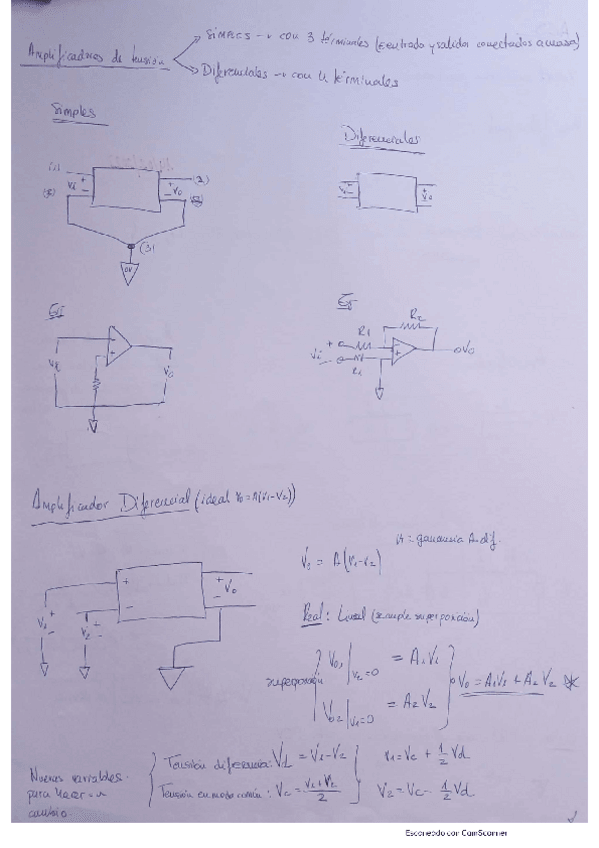 Amplificadores de tensión
Simples → con 3 terminales (entrada y salidas conectadas a masa)
Diferenciales → con 4 terminales
Simples
Diferenciales
(2)
Vi + -
+ - Vo
(3)
0V
Ej
Ej
R2
R1
Vi + -
Vo
Amplificador Diferencial (ideal Vo = A(V1-V2))
A = ganancia A. dif.
Vo = A(V1-V2)
+ -
+ - Vo
V1 + -
V2 + -
Real: Lineal (cumple superposición)
superposición
Vo1 |V2=0 = A1V1
Vo2 |V1=0 = A2V2
Vo = A1V1 + A2V2 *
Nuevas variables
para hacer un
cambio.
Tensión diferencia: Vd = V1 - V2
V1 = Vc + 1/2 Vd
Tensión en modo común: Vc = (V1 + V2)/2
V2 = Vc - 1/2 Vd
Escaneado con CamScanner